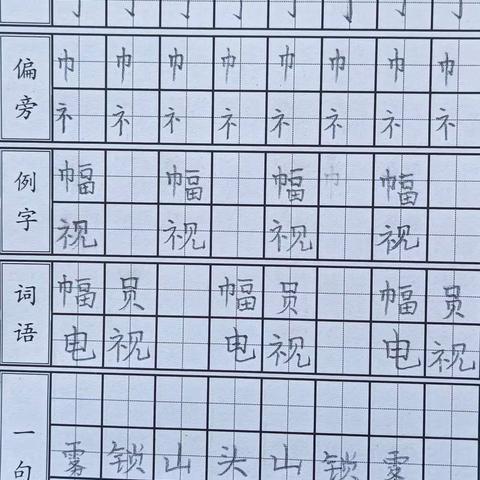 偏 巾 巾 巾 巾 巾 巾 巾 巾
旁 礻 礻 礻 礻 礻 礻 礻 礻
例 幅 幅 幅 巾 幅
字 视 视 视 视
词 幅员 幅员 幅员
语 电视 电视 电视
一
句 雾锁山头山锁雾